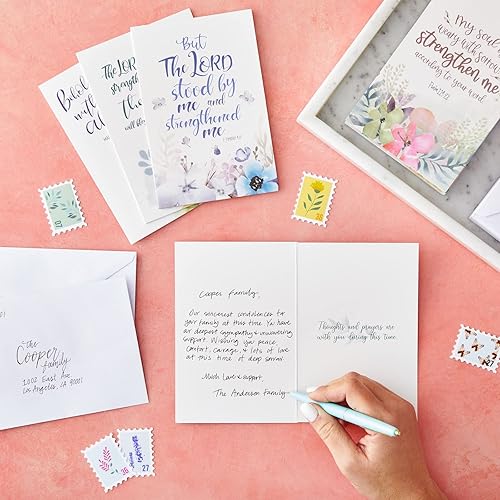 But
The LORD
stood by
me and
strengthened
me.
The LORD
My soul
weary with sorrow
strengthen me
according to your word.
Cooper Family,
Our sincerest condolences for
your family at this time. You have
our deepest sympathy & unwavering
support. Wishing you peace,
comfort, courage, & lots of love
at this time of deep sorrow.
Much Love & support,
The Anderson Family
Thoughts and prayers are
with you during this time.
the
Cooper
family
1202 East Ave
Los Angeles, CA 90001
27